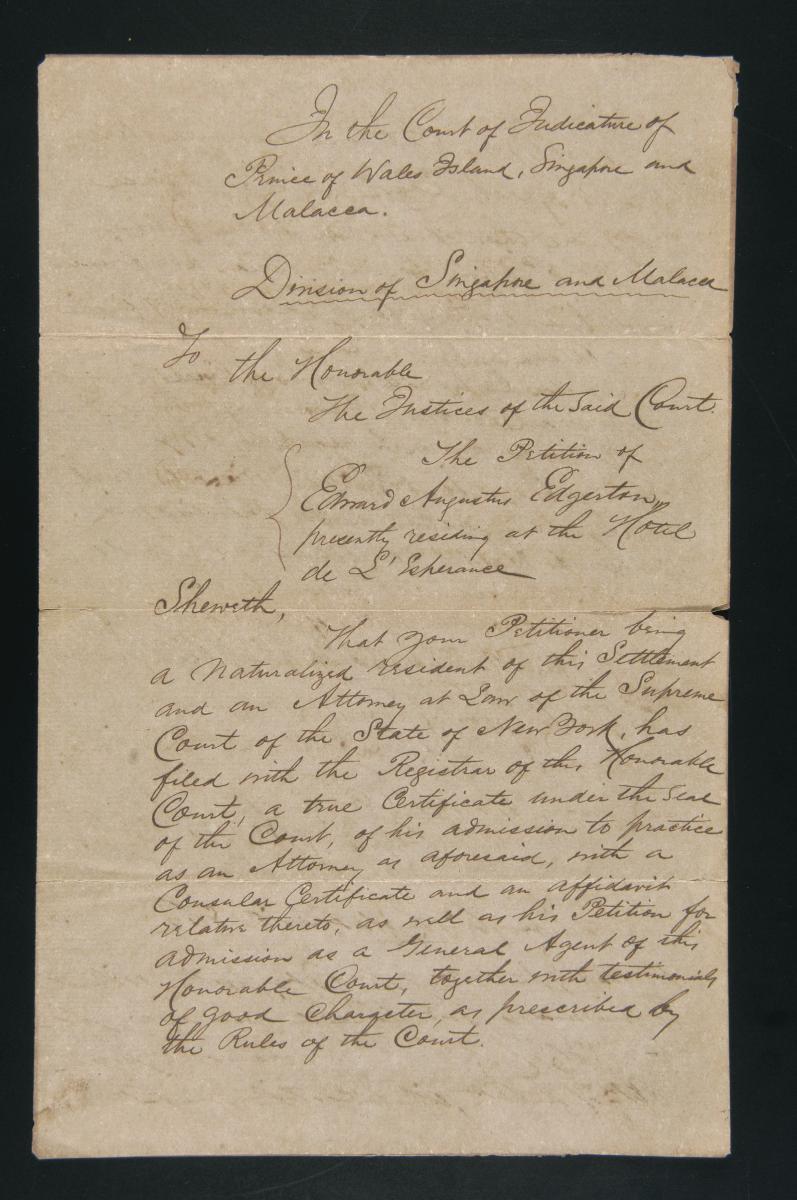 In the Court of Judicature of
Prince of Wales Island, Singapore and
Malacca.
Division of Singapore and Malacca
To
the Honorable
The Justices of the said Court.
The Petition of
Edward Augustus Edgerton,
presently residing at the Hotel
de L'Esperance
Sheweth,
That your Petitioner being
a Naturalized resident of this Settlement
and an Attorney at Law of the Supreme
Court of the State of New York, has
filed with the Registrar of this Honorable
Court, a true Certificate under the Seal
of the Court, of his admission to practice
as an Attorney as aforesaid, with a
Consular Certificate and an affidavit
relative thereto, as well as his Petition for
admission as a General Agent of this
Honorable Court, together with testimonials
of good Character, as prescribed by
the Rules of the Court.